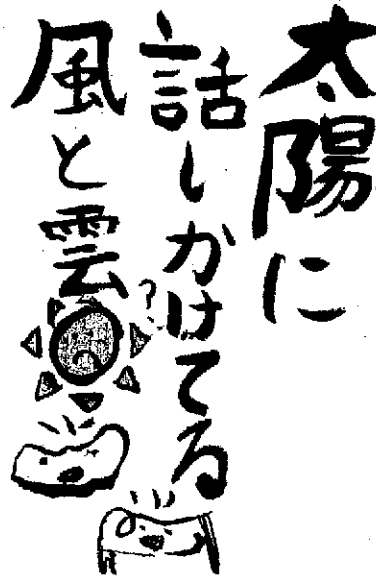 太陽に
話しかけてる
風と雲
?